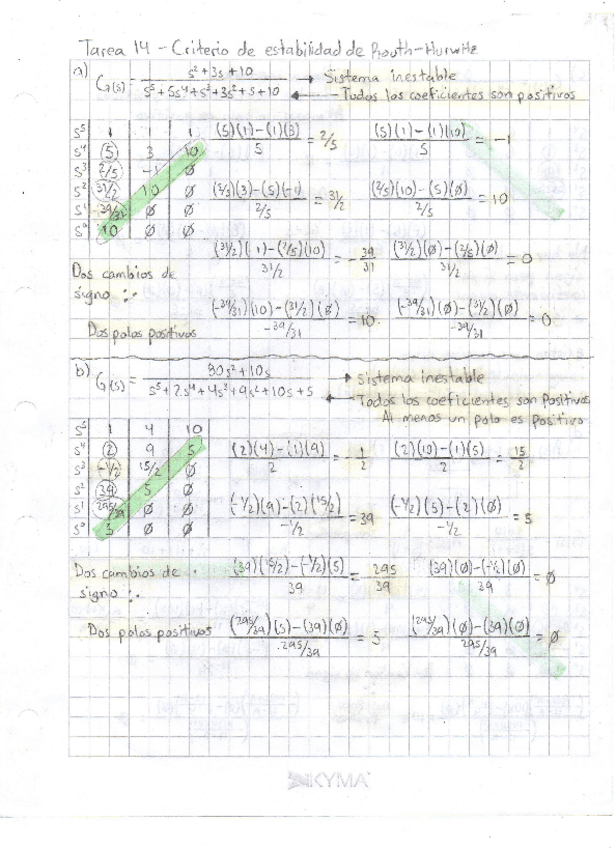 Tarea 14 - Criterio de estabilidad de Routh-Hurwitz
a) G(s) = (s² + 3s + 10) / (s⁵ + 5s⁴ + s³ + 3s² + s + 10) → Sistema inestable
← Todos los coeficientes son positivos
s⁵ | 1 | 1 | 1
s⁴ | 5 | 3 | 10
s³ | 2/5 | -1 | Ø
s² | 31/2 | 10 | Ø
s¹ | -39/31 | Ø | Ø
s⁰ | 10 | Ø | Ø
((5)(1)-(1)(3))/5 = 2/5   ((5)(1)-(1)(10))/5 = -1
((2/5)(3)-(5)(-1))/(2/5) = 31/2   ((2/5)(10)-(5)(Ø))/(2/5) = 10
((31/2)(-1)-(2/5)(10))/(31/2) = -39/31   ((31/2)(Ø)-(2/5)(Ø))/(31/2) = 0
Dos cambios de
signo ∴
((-39/31)(10)-(31/2)(Ø))/(-39/31) = 10   ((-39/31)(Ø)-(31/2)(Ø))/(-39/31) = 0
Dos polos positivos
b) G(s) = (80s² + 10s) / (s⁵ + 2s⁴ + 4s³ + 9s² + 10s + 5) → Sistema inestable
← Todos los coeficientes son positivos
Al menos un polo es positivo
s⁵ | 1 | 4 | 10
s⁴ | 2 | 9 | 5
s³ | -1/2 | 15/2 | Ø
s² | 39 | 5 | Ø
s¹ | 295/39 | Ø | Ø
s⁰ | 5 | Ø | Ø
((2)(4)-(1)(9))/2 = -1/2   ((2)(10)-(1)(5))/2 = 15/2
((-1/2)(9)-(2)(15/2))/(-1/2) = 39   ((-1/2)(5)-(2)(Ø))/(-1/2) = 5
Dos cambios de
signo ∴
((39)(15/2)-(-1/2)(5))/39 = 295/39   ((39)(Ø)-(-1/2)(Ø))/39 = Ø
Dos polos positivos
((295/39)(5)-(39)(Ø))/(295/39) = 5   ((295/39)(Ø)-(39)(Ø))/(295/39) = Ø
KYMA